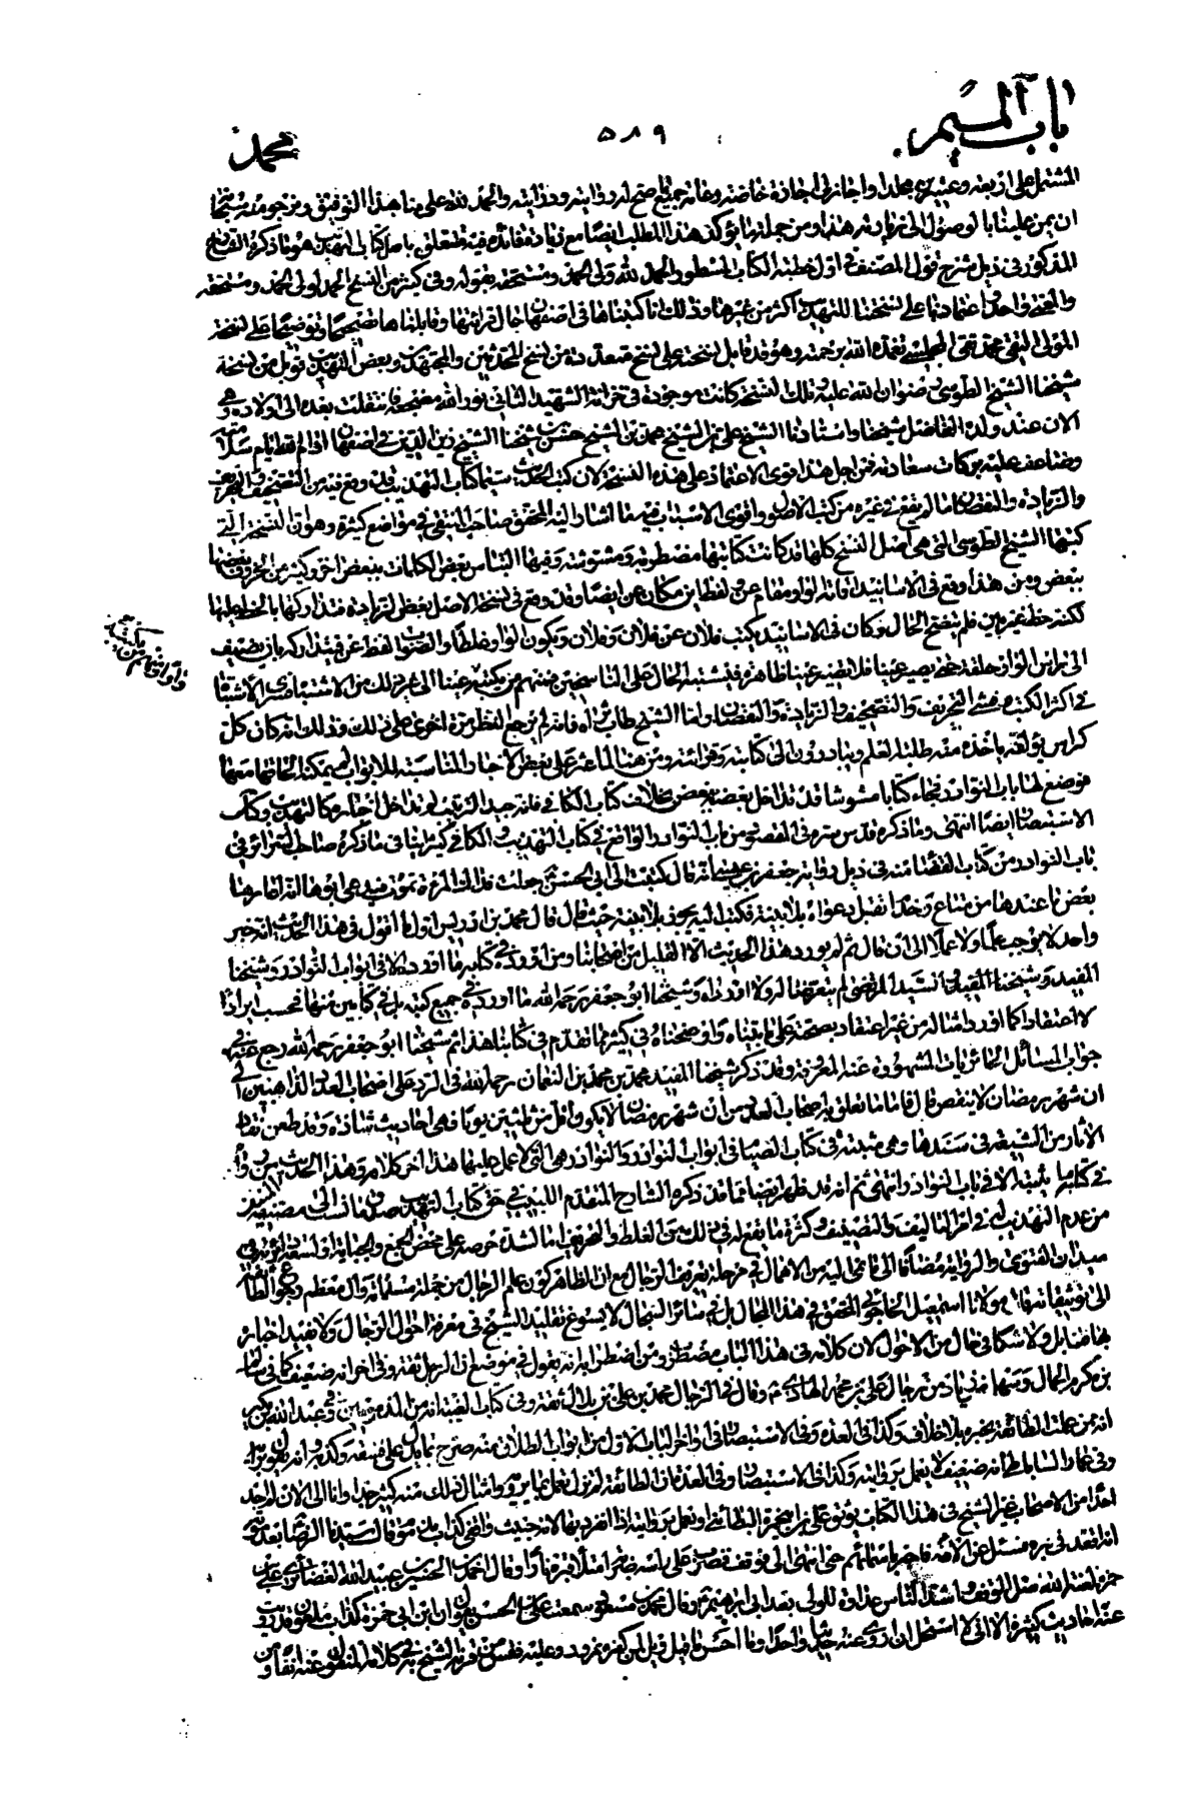 باب الميم
٥٨٩
محمد
المشتمل على اربعة وعشرين مجلدا واجازلى اجازة خاصة وعامة جميع ما صح له روايته ودرايته والحمد لله على هذا التوفيق ونرجو منه سبحانه
ان يمن علينا بالوصول الى زيادته هذا ومن جملة ما يؤكد هذا المطلب ايضا مع زيادة فائدة فيه تتعلق باصل كتابى التهذيب هو ما ذكره الشارح
المذكور فى ذيل شرح قول المصنف فى اول خطبة الكتاب المسطور الحمد لله ولى الحمد ومستحقه بقوله وفى كثير من النسخ الحمد لولى الحمد ومستحقه
والمعنى واحد واعتمادنا على نسختنا للتهذيب اكثر من غيرها وذلك انا كتبناها فى اصفهان حال قرائتها وقابلناها تصحيحا وتوضيحا على نسخة
المولى التقى محمد تقى المجلسى تغمده الله برحمته وهو قد قابل نسخته على نسخ متعددة من نسخ المحدثين والمجتهدين وبعض التهذيب قوبل من نسخة
شيخنا الشيخ الطوسى رضوان الله عليه وتلك النسخة كانت موجودة فى خزانة الشهيد الثانى نور الله مضجعه فانتقلت بعده الى اولاده وهى
الان عند ولده الفاضل شيخنا واستادنا الشيخ على بن الشيخ محمد بن الشيخ حسن بن شيخنا الشيخ زين الدين فى اصفهان ادام الله ايام سلامته
وضاعف عليه بركات سعادته فمن اجل هذا قوى الاعتماد على هذه النسخة لان كتب الحديث سيما كتاب التهذيب قد وقع فيه من التصحيف والتحريف
والزيادة والنقصان ما لم يقع فى غيره من كتب الاصول واقوى الاسباب فيه ما اشار اليه المحقق صاحب المنتقى فى مواضع كثيرة وهو ان النسخة التى
كتبها الشيخ الطوسى التى هى اصل النسخ كلها قد كانت كتابتها مضطربة ومشوشة وفيها التباس بعض الكلمات ببعض اخر وكثير من الحروف بعضها
ببعض ومن هذا وقع فى الاسانيد اقامة الواو مقام عن ولفظ ابن مكان عن ايضا وقد وقع فى نسخة الاصل بعض الزيادة فتداركها بالخط عليها
لكنه خط غير بين فلم يتضح الحال وكان فى الاسانيد يكتب فلان عن فلان وفلان ويكون الواو غلطا والصواب لفظ عن فيتداركه بان يضيف
واو اقائم من يكتبه
الى راس الواو حلقة حتى يصير عينا فلم يصر عينا ظاهرة فيشتبه الحال على الناسخين فمنهم من يكتبه عينا الى غير ذلك من الاشتباه
فى اكثر الكتب من التحريف والتصحيف والزيادة والنقصان واما الشيخ طاب ثراه فانه لم يرجع النظر مرة اخرى على ذلك وذلك انه كان كل
كراس يؤلفه ياخذه منه طلبة العلم ويبادرون الى كتابته وقرائته ومن هنا لما عثر على بعض الاخبار المناسبة للابواب لم يمكنه الحاقها معها
فوضع لها باب النوادر فجاء كتابا مشوشا قد تداخل بعضه ببعض بخلاف كتاب الكافى فانه جيد الترتيب لم تداخل اخباره كالتهذيب وكتاب
الاستبصار ايضا انتهى وما ذكره قدس سره فى الفصل من باب النوادر الواقع فى كتاب التهذيب والكافى كثيرا ينافى ما ذكره صاحب السرائر فى
باب النوادر من كتاب القضا منه فى ذيل رواية جعفر بن عيسى انه قال كتبت الى ابى الحسن جعلت فداك المراة تموت فيدعى ابوها انه اعارها
بعض ما عندها من متاع وخدم اتقبل دعواه بلا بينة فكتب اليه يجوز بلا بينة حيث قال قال محمد بن ادريس اول ما اقول فى هذا الحديث انه خبر
واحد لا يوجب علما ولا عملا الى ان قال ثم لم يورد هذا الحديث الا القليل من اصحابنا ومن اورده فى كتابه ما اورده الا فى ابواب النوادر وشيخنا
المفيد وشيخنا السيد المرتضى لم يتعرضا له ولا اورداه وشيخنا ابو جعفر رحمه الله ما اورده فى جميع كتبه بل فى كتابين منها فحسب ايرادا
لا اعتقادا كما اورد امثاله من غير اعتقاد بصحته على ما بيناه واوضحناه فى كثير مما تقدم فى كتابنا هذا ثم شيخنا ابو جعفر رحمه الله رجع عنه فى
جواب المسائل الحائريات المشهورة عنه المعروفة وقد ذكر شيخنا المفيد محمد بن محمد بن النعمان رحمه الله فى الرد على اصحاب العدد الذاهبين الى
ان شهر رمضان لا ينقص قال فاما ما تعلق به اصحاب العدد من ان شهر رمضان لا يكون اقل من ثلثين يوما فهى احاديث شاذة وقد طعن نقاد
الاثار من الشيعة فى سندها وهى مثبتة فى كتاب الصيام فى ابواب النوادر والنوادر هى التى لا عمل عليها هذا اخر كلامه وهذا الحديث من
فى كتابيه ما يثبته الا فى باب النوادر انتهى ثم انه قد ظهر ايضا مما قد ذكره الشارح المتقدم فى حق كتاب التهذيب
من عدم التهذيب له فى امر التاليف والتصنيف وكثرة ما يقع له فى ذلك من الغلط والتحريف اما لشدة حرصه على محض الجمع والجباية او لسعة دائرته فى
ميدان الفتوى والرواية مضافا الى ما فى اليه من الاهمال فى مرحلة تعريف الرجال مع ان الظاهر كون علم الرجال من جملة مسلماته وال معظم رجوع الطائفة
الى توثيقاته قال مولانا اسمعيل الخاجوئى المحقق فى هذا المجال بل فى سائر المجال لا يسوغ تقليد الشيخ فى معرفة احوال الرجال ولا يفيد اخباره
بها ظنا بل ولا شكا فى حال من الاحوال لان كلامه فى هذا الباب مضطرب ومن اضطرابه انه يقول فى موضع ان الرجل ثقة وفى اخر انه ضعيف كما فى سالم
بن مكرم الجمال وسهل بن زياد من رجال على بن محمد الهادى ع وقال فى الرجال محمد بن على بن بلال ثقة وفى كتاب الغيبة انه من المذمومين وفى عبد الله بن بكير
انه ممن عملت الطائفة بخبره بلا خلاف وكذا فى العدة وفى الاستبصار فى اواخر الباب الاول من ابواب الطلاق منه صرح بما يدل على فسقه وكذبه وانه يقول برايه
وفى عمار الساباطى انه ضعيف لا يعمل بروايته وكذا فى الاستبصار وفى العدة ان الطائفة لم تزل تعمل بما يرويه وامثال ذلك منه كثير جدا وانا الى الان لم اجد
احدا من الاصحاب غير الشيخ فى هذا الكتاب يوثق على بن ابى حمزة البطائنى او يعمل بروايته اذا انفرد بها لانه خبيث واقفى كذاب مذموم قال سيدنا الرضا بعد موته
انه اقعد فى قبره فسئل عن الائمة فاخبر باسمائهم حتى انتهى الى فوقف فضرب على راسه ضربة امتلا قبره نارا وقال احمد بن الحسين بن عبيد الله الغضائرى على بن ابى
حمزة لعنه الله اصل الوقف واشد الناس عداوة للولى بعد ابى ابراهيم ع وقال محمد بن مسعود سمعت على بن الحسن يقول ان ابن ابى حمزة كذاب ملعون قد رويت
عنه احاديث كثيرة الا انى لا استحل ان اروى عنه حديثا واحدا وما احسن ما قيل فى كلامه المنقول عنه انفا